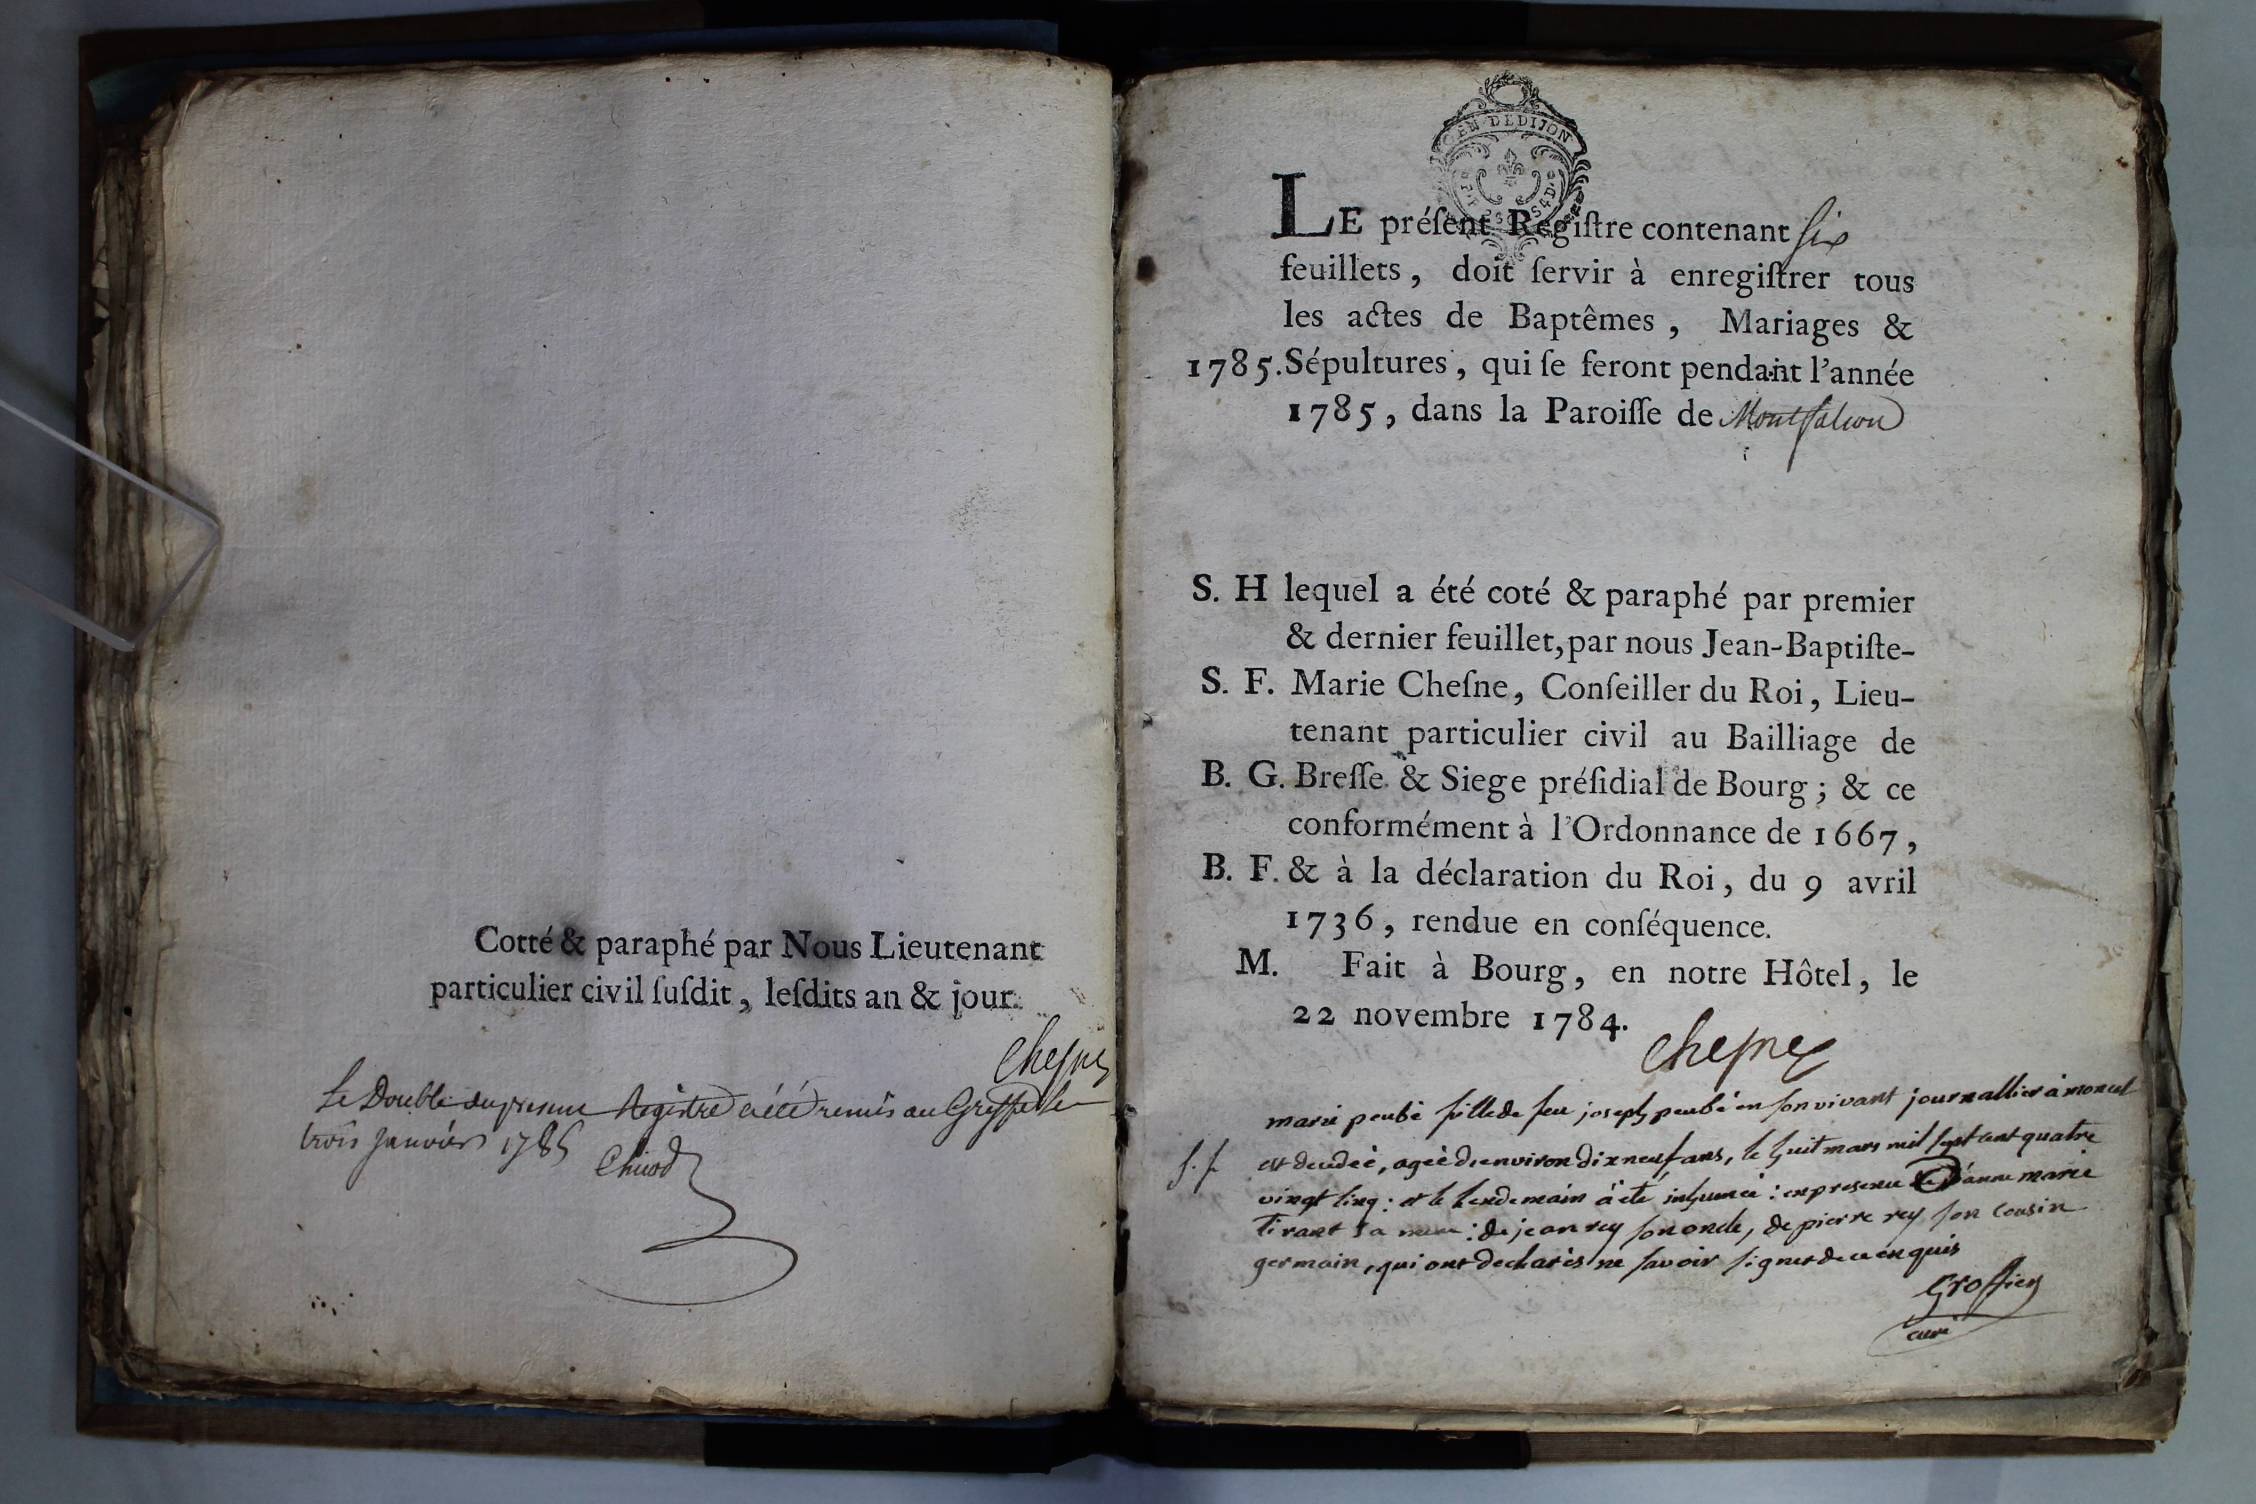 Cotté & paraphé par Nous Lieutenant
particulier civil ſuſdit, leſdits an & jour.
Cheſne
Le Double du preſent Regiſtre a été remis au Greffe le
trois Janvier 1785
GEN DE DIJON
LE préſent Regiſtre contenant ſix
feuillets, doit ſervir à enregiſtrer tous
les actes de Baptêmes, Mariages &
1785. Sépultures, qui ſe feront pendant l'année
1785, dans la Paroiſſe de Montfalcon
S. H lequel a été coté & paraphé par premier
& dernier feuillet, par nous Jean-Baptiſte-
S. F. Marie Cheſne, Conſeiller du Roi, Lieu-
tenant particulier civil au Bailliage de
B. G. Breſſe & Siege préſidial de Bourg; & ce
conformément à l'Ordonnance de 1667,
B. F. & à la déclaration du Roi, du 9 avril
1736, rendue en conſéquence.
M. Fait à Bourg, en notre Hôtel, le
22 novembre 1784.
Cheſne
marie peubé fille de feu joseph peubé en ſon vivant journallier à
S. f. est decedeè, ageè d'environ dix neuf ans, le huit mars mil ſept cent quatre
vingt cinq: et le lendemain à eté inhumeè: en presence d'anne marie
tirant sa mere: de jean rey ſon oncle, de pierre rey ſon cousin
germain, qui ont declarès ne ſavoir ſigner de ce enquis
Groſſier
curé